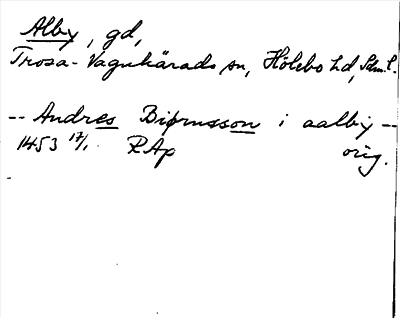 Alby, gd,
Trosa-Vagnhärads sn, Hölebo hd, Sdm. l.
-- Andres Biørnsson i aalby --
1453 17/1. RAp orig.